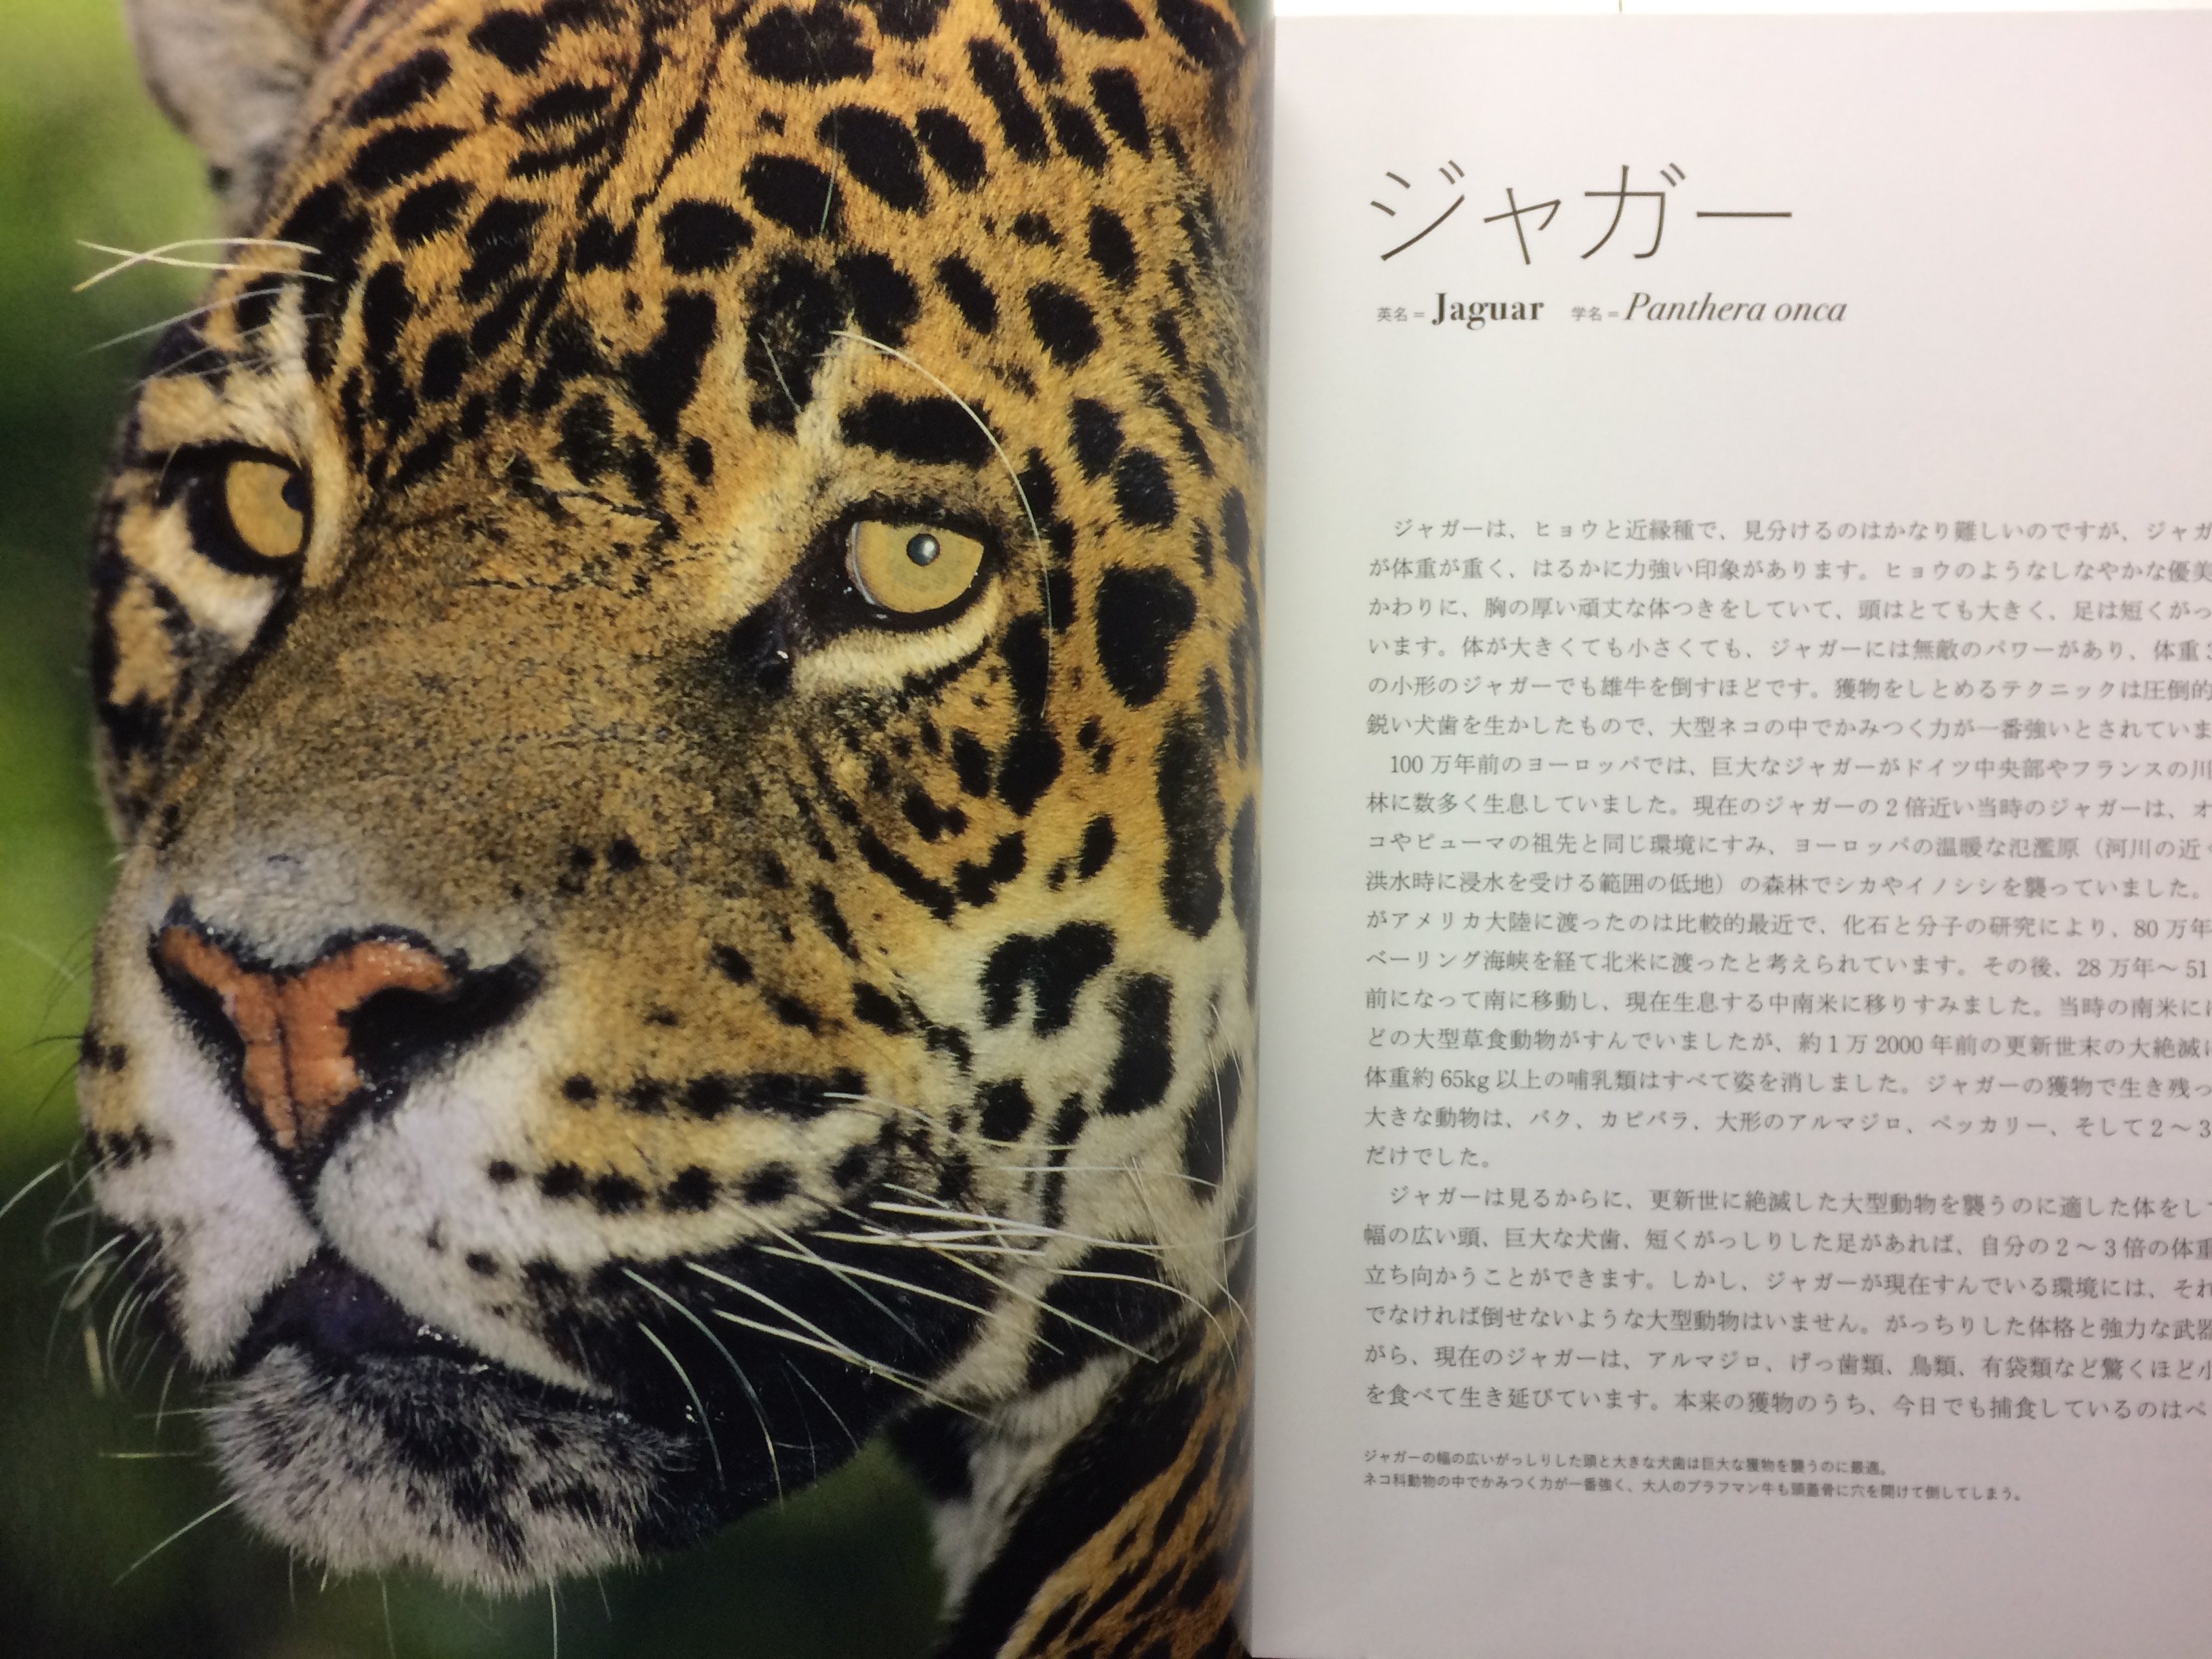 ジャガー
英名＝Jaguar 学名＝Panthera onca
ジャガーは、ヒョウと近縁種で、見分けるのはかなり難しいのですが、ジャガ
が体重が重く、はるかに力強い印象があります。ヒョウのようなしなやかな優美
かわりに、胸の厚い頑丈な体つきをしていて、頭はとても大きく、足は短くがっ
います。体が大きくても小さくても、ジャガーには無敵のパワーがあり、体重3
の小形のジャガーでも雄牛を倒すほどです。獲物をしとめるテクニックは圧倒的
鋭い犬歯を生かしたもので、大型ネコの中でかみつく力が一番強いとされていま
100万年前のヨーロッパでは、巨大なジャガーがドイツ中央部やフランスの川
林に数多く生息していました。現在のジャガーの2倍近い当時のジャガーは、オ
コやピューマの祖先と同じ環境にすみ、ヨーロッパの温暖な氾濫原（河川の近く
洪水時に浸水を受ける範囲の低地）の森林でシカやイノシシを襲っていました。
がアメリカ大陸に渡ったのは比較的最近で、化石と分子の研究により、80万年
ベーリング海峡を経て北米に渡ったと考えられています。その後、28万年～51
前になって南に移動し、現在生息する中南米に移りすみました。当時の南米には
どの大型草食動物がすんでいましたが、約1万2000年前の更新世末の大絶滅に
体重約65kg以上の哺乳類はすべて姿を消しました。ジャガーの獲物で生き残っ
大きな動物は、バク、カピバラ、大形のアルマジロ、ペッカリー、そして2～3
だけでした。
ジャガーは見るからに、更新世に絶滅した大型動物を襲うのに適した体をして
幅の広い頭、巨大な犬歯、短くがっしりした足があれば、自分の2～3倍の体重
立ち向かうことができます。しかし、ジャガーが現在すんでいる環境には、それ
でなければ倒せないような大型動物はいません。がっちりした体格と強力な武器
がら、現在のジャガーは、アルマジロ、げっ歯類、鳥類、有袋類など驚くほど小
を食べて生き延びています。本来の獲物のうち、今日でも捕食しているのはペ
ジャガーの幅の広いがっしりした頭と大きな犬歯は巨大な獲物を襲うのに最適。
ネコ科動物の中でかみつく力が一番強く、大人のブラフマン牛も頭蓋骨に穴を開けて倒してしまう。